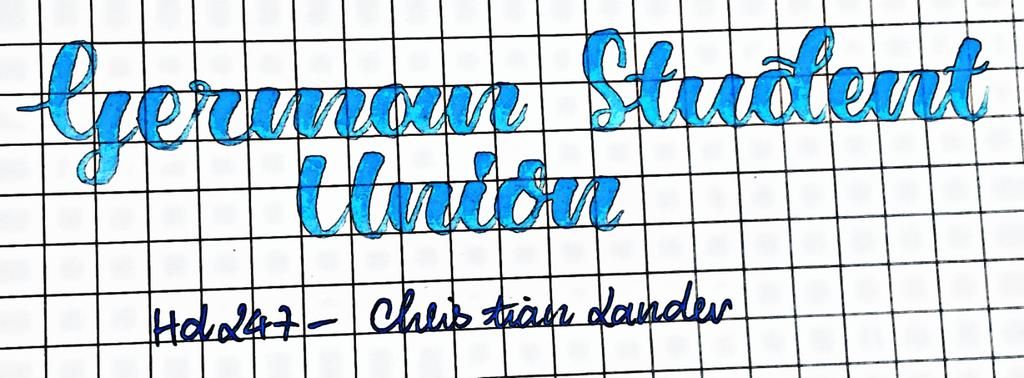 German Student
Union
Hd247 - Christian Lander